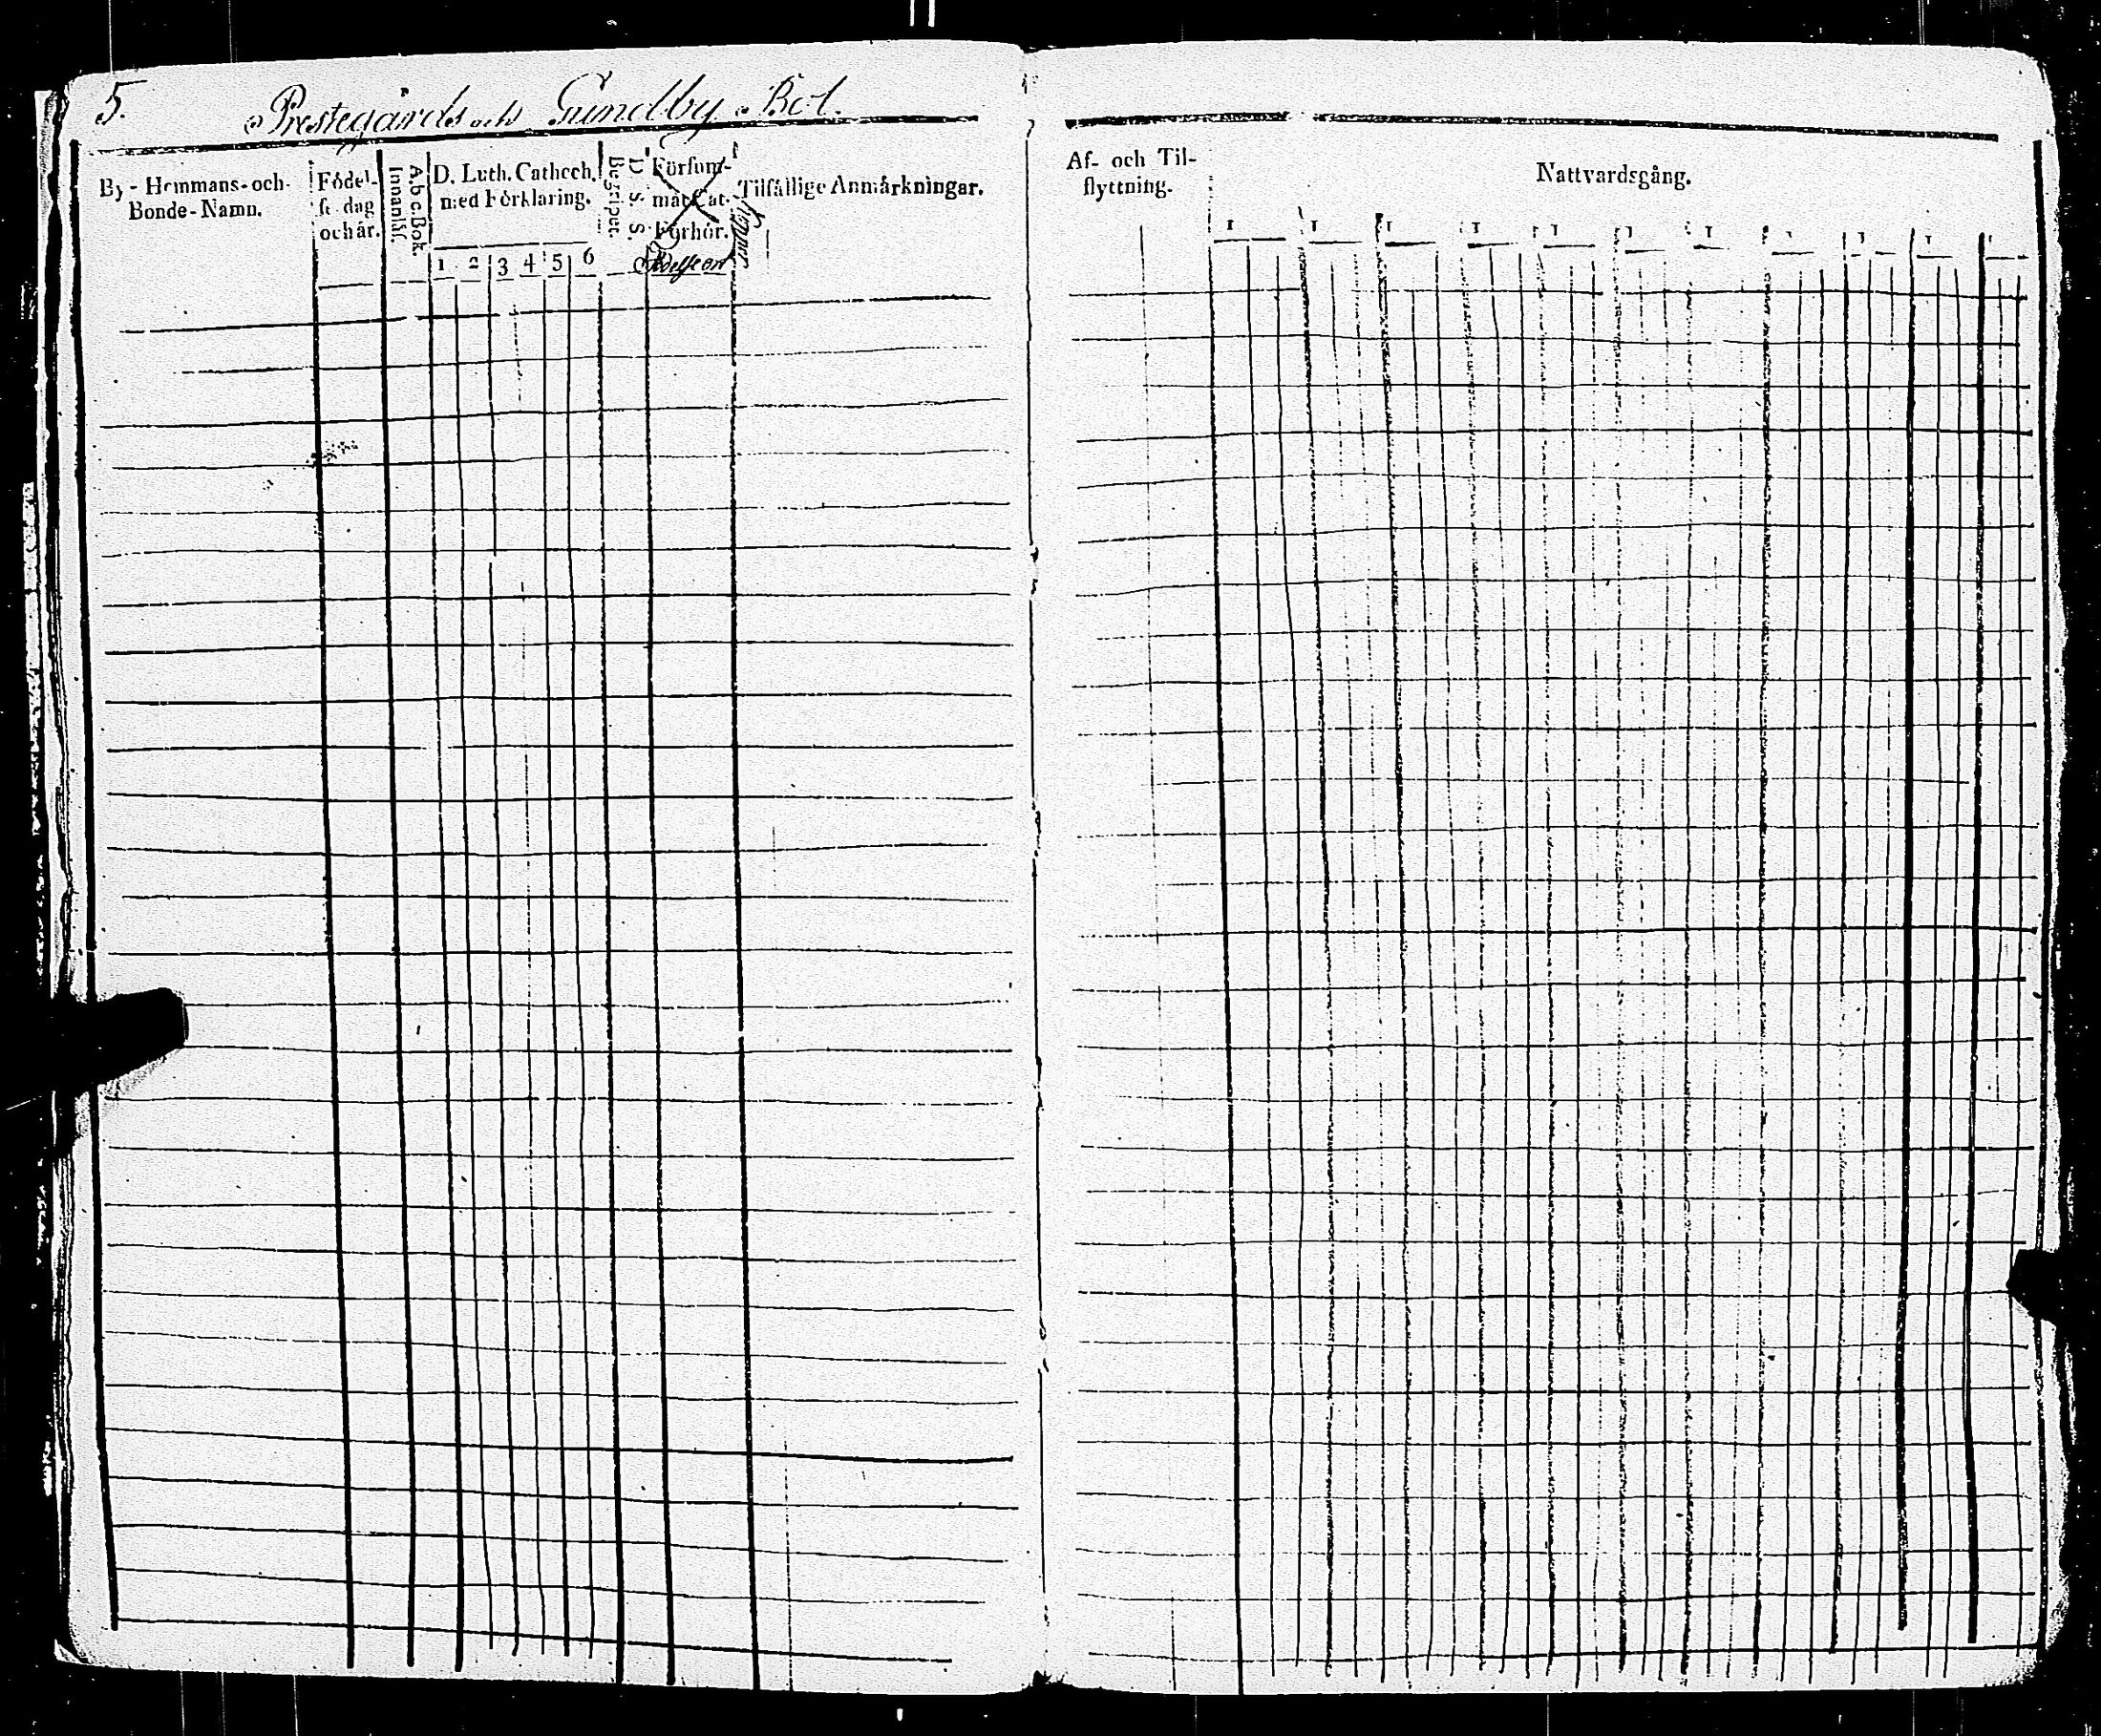 5. Prestegårds och Gundby Bol.
By-Hemmans-och-
Bonde-Namn.
Födel-
se dag
och år.
A.b.c. Bok.
Innanläs.
D. Luth. Cathech.
med Förklaring.
1 2 3 4 5 6
Begripet.
D. S. S.
Försum-
mat Cat.
Förhör.
Tilfällige Anmärkningar.
Af- och Til-
flyttning.
Nattvardsgång.
1 1 1 1 1 1 1 1 1 1 1